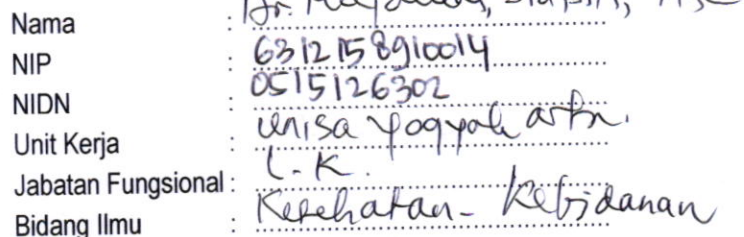 Nama : Dr.
NIP : 6312158910014
NIDN : 0515126302
Unit Kerja : Unisa Yogyakarta.
Jabatan Fungsional : L.K.
Bidang Ilmu : Kesehatan - Kebidanan